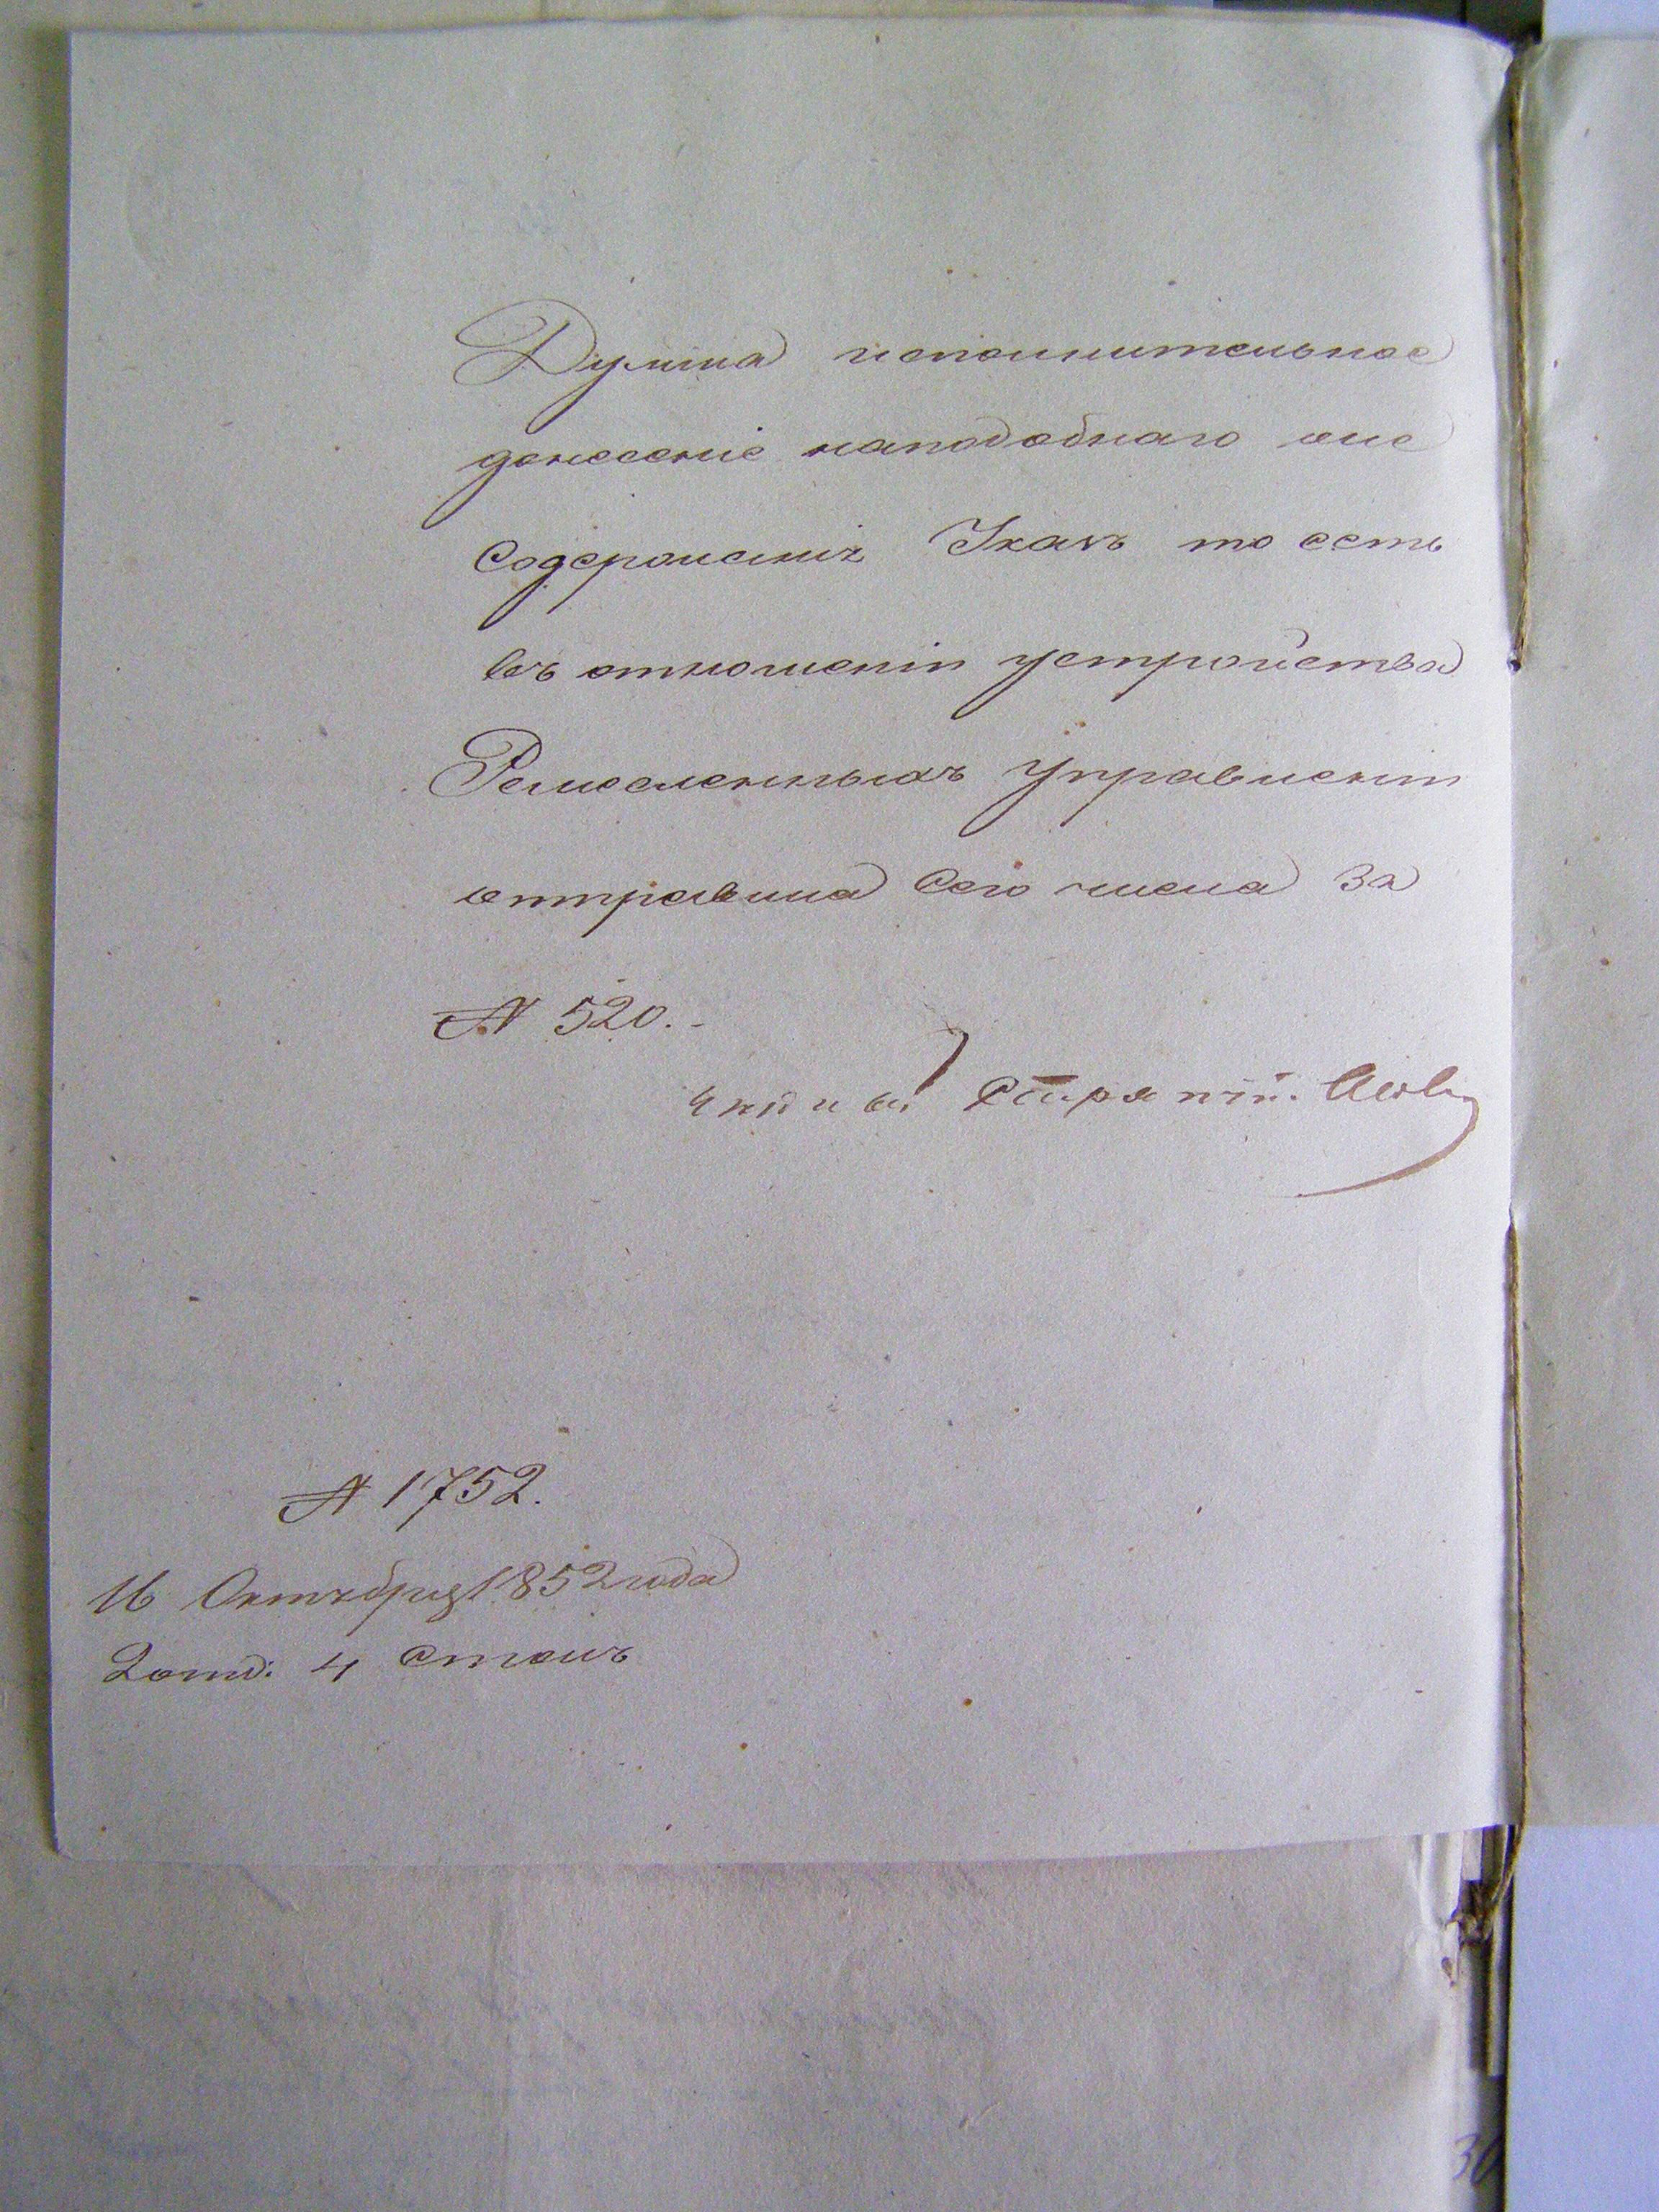 Думма исполнительное
донесеніе наподобнаго оне
Содержанія Указъ то есть
въ отношеніи устройства
Ремесленныхъ Управленій
отправила Сего числа за
№ 520.-
№ 1752.
16 Октября 1852 года
2 отд: 4 Столъ